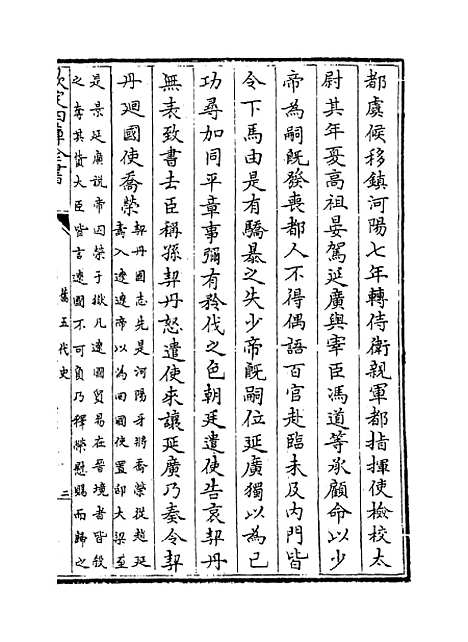 都虞候移鎮河陽七年轉侍衛親軍都指揮使檢校太
尉其年夏高祖晏駕延廣與宰臣馮道等承顧命以少
帝為嗣既發喪都人不得偶語百官赴臨未及內門皆
令下馬由是有驕暴之失少帝既嗣位延廣獨以為己
功尋加同平章事彌有矜伐之色朝廷遣使告哀契丹
無表致書去臣稱孫契丹怒遣使來讓延廣乃奏令契
丹廻國使喬榮
契丹國志先是河陽牙將喬榮從趙延
壽入遼遼帝以為回國使置邸大梁至
是景延廣說帝囚榮于獄凡遼國貿易在晉境者皆殺
之奪其貨大臣皆言遼國不可負乃釋榮慰賜而歸之
欽定四庫全書
舊五代史
三